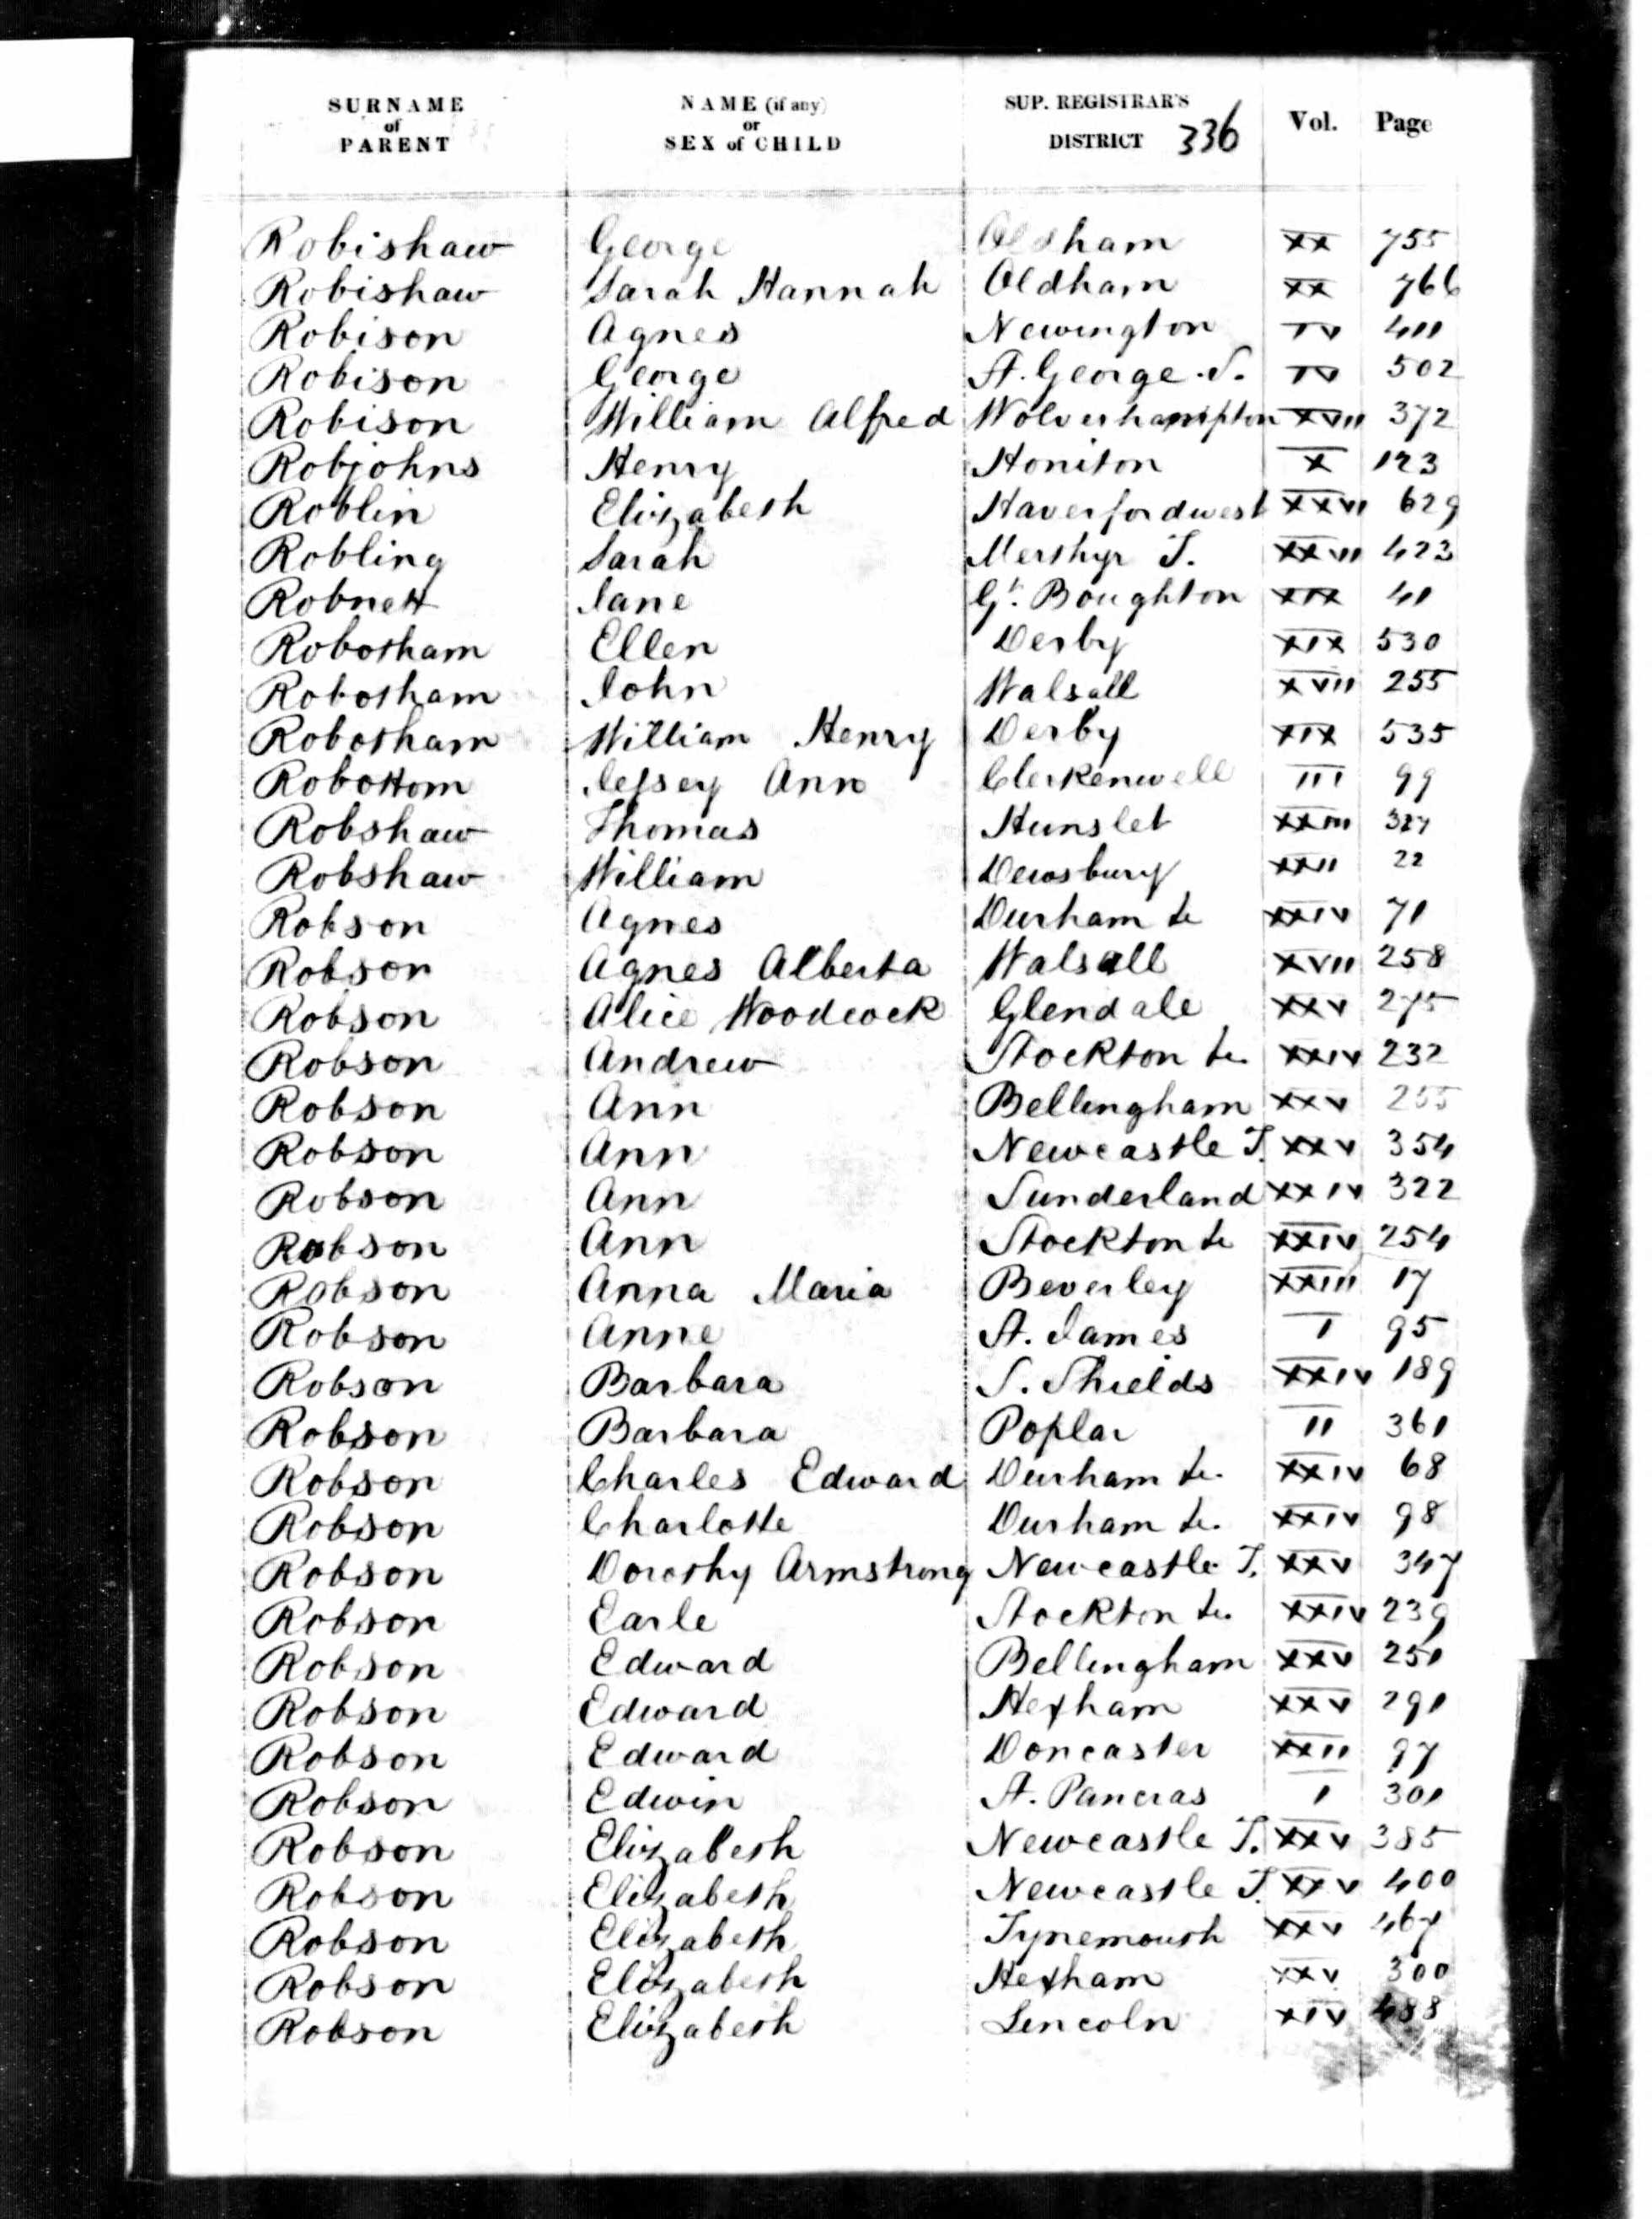 SURNAME of PARENT NAME (if any) or SEX of CHILD SUP. REGISTRAR'S DISTRICT 336 Vol. Page
Robishaw George Oldham XX 755
Robishaw Sarah Hannah Oldham XX 766
Robison Agnes Newington IV 411
Robison George St. George. S. IV 502
Robison William Alfred Wolverhampton XVII 372
Robjohns Henry Honiton X 123
Roblin Elizabeth Haverfordwest XXVI 629
Robling Sarah Merthyr T. XXVI 423
Robnett Jane Gt. Boughton XIX 41
Robotham Ellen Derby XIX 530
Robotham John Walsall XVII 255
Robotham William Henry Derby XIX 535
Robottom Jessey Ann Clerkenwell III 99
Robshaw Thomas Hunslet XXIII
Robshaw William Dewsbury XXII 22
Robson Agnes Durham &c XXIV 71
Robson Agnes Alberta Walsall XVII 258
Robson Alice Woodcock Glendale XXV 275
Robson Andrew Stockton &c. XXIV 232
Robson Ann Bellingham XXV 255
Robson Ann Newcastle T. XXV 354
Robson Ann Sunderland XXIV 322
Robson Ann Stockton &c XXIV 254
Robson Anna Maria Beverley XXIII 17
Robson Anne St. James I 95
Robson Barbara S. Shields XXIV 189
Robson Barbara Poplar II 361
Robson Charles Edward Durham &c. XXIV 68
Robson Charlotte Durham &c. XXIV 98
Robson Dorothy Armstrong Newcastle T. XXV 347
Robson Earle Stockton &c. XXIV 239
Robson Edward Bellingham XXV 251
Robson Edward Hexham XXV 291
Robson Edward Doncaster XXII 97
Robson Edwin St. Pancras I 301
Robson Elizabeth Newcastle T. XXV 385
Robson Elizabeth Newcastle T. XXV 400
Robson Elizabeth Tynemouth XXV 467
Robson Elizabeth Hexham XXV 300
Robson Elizabeth Lincoln XIV 488